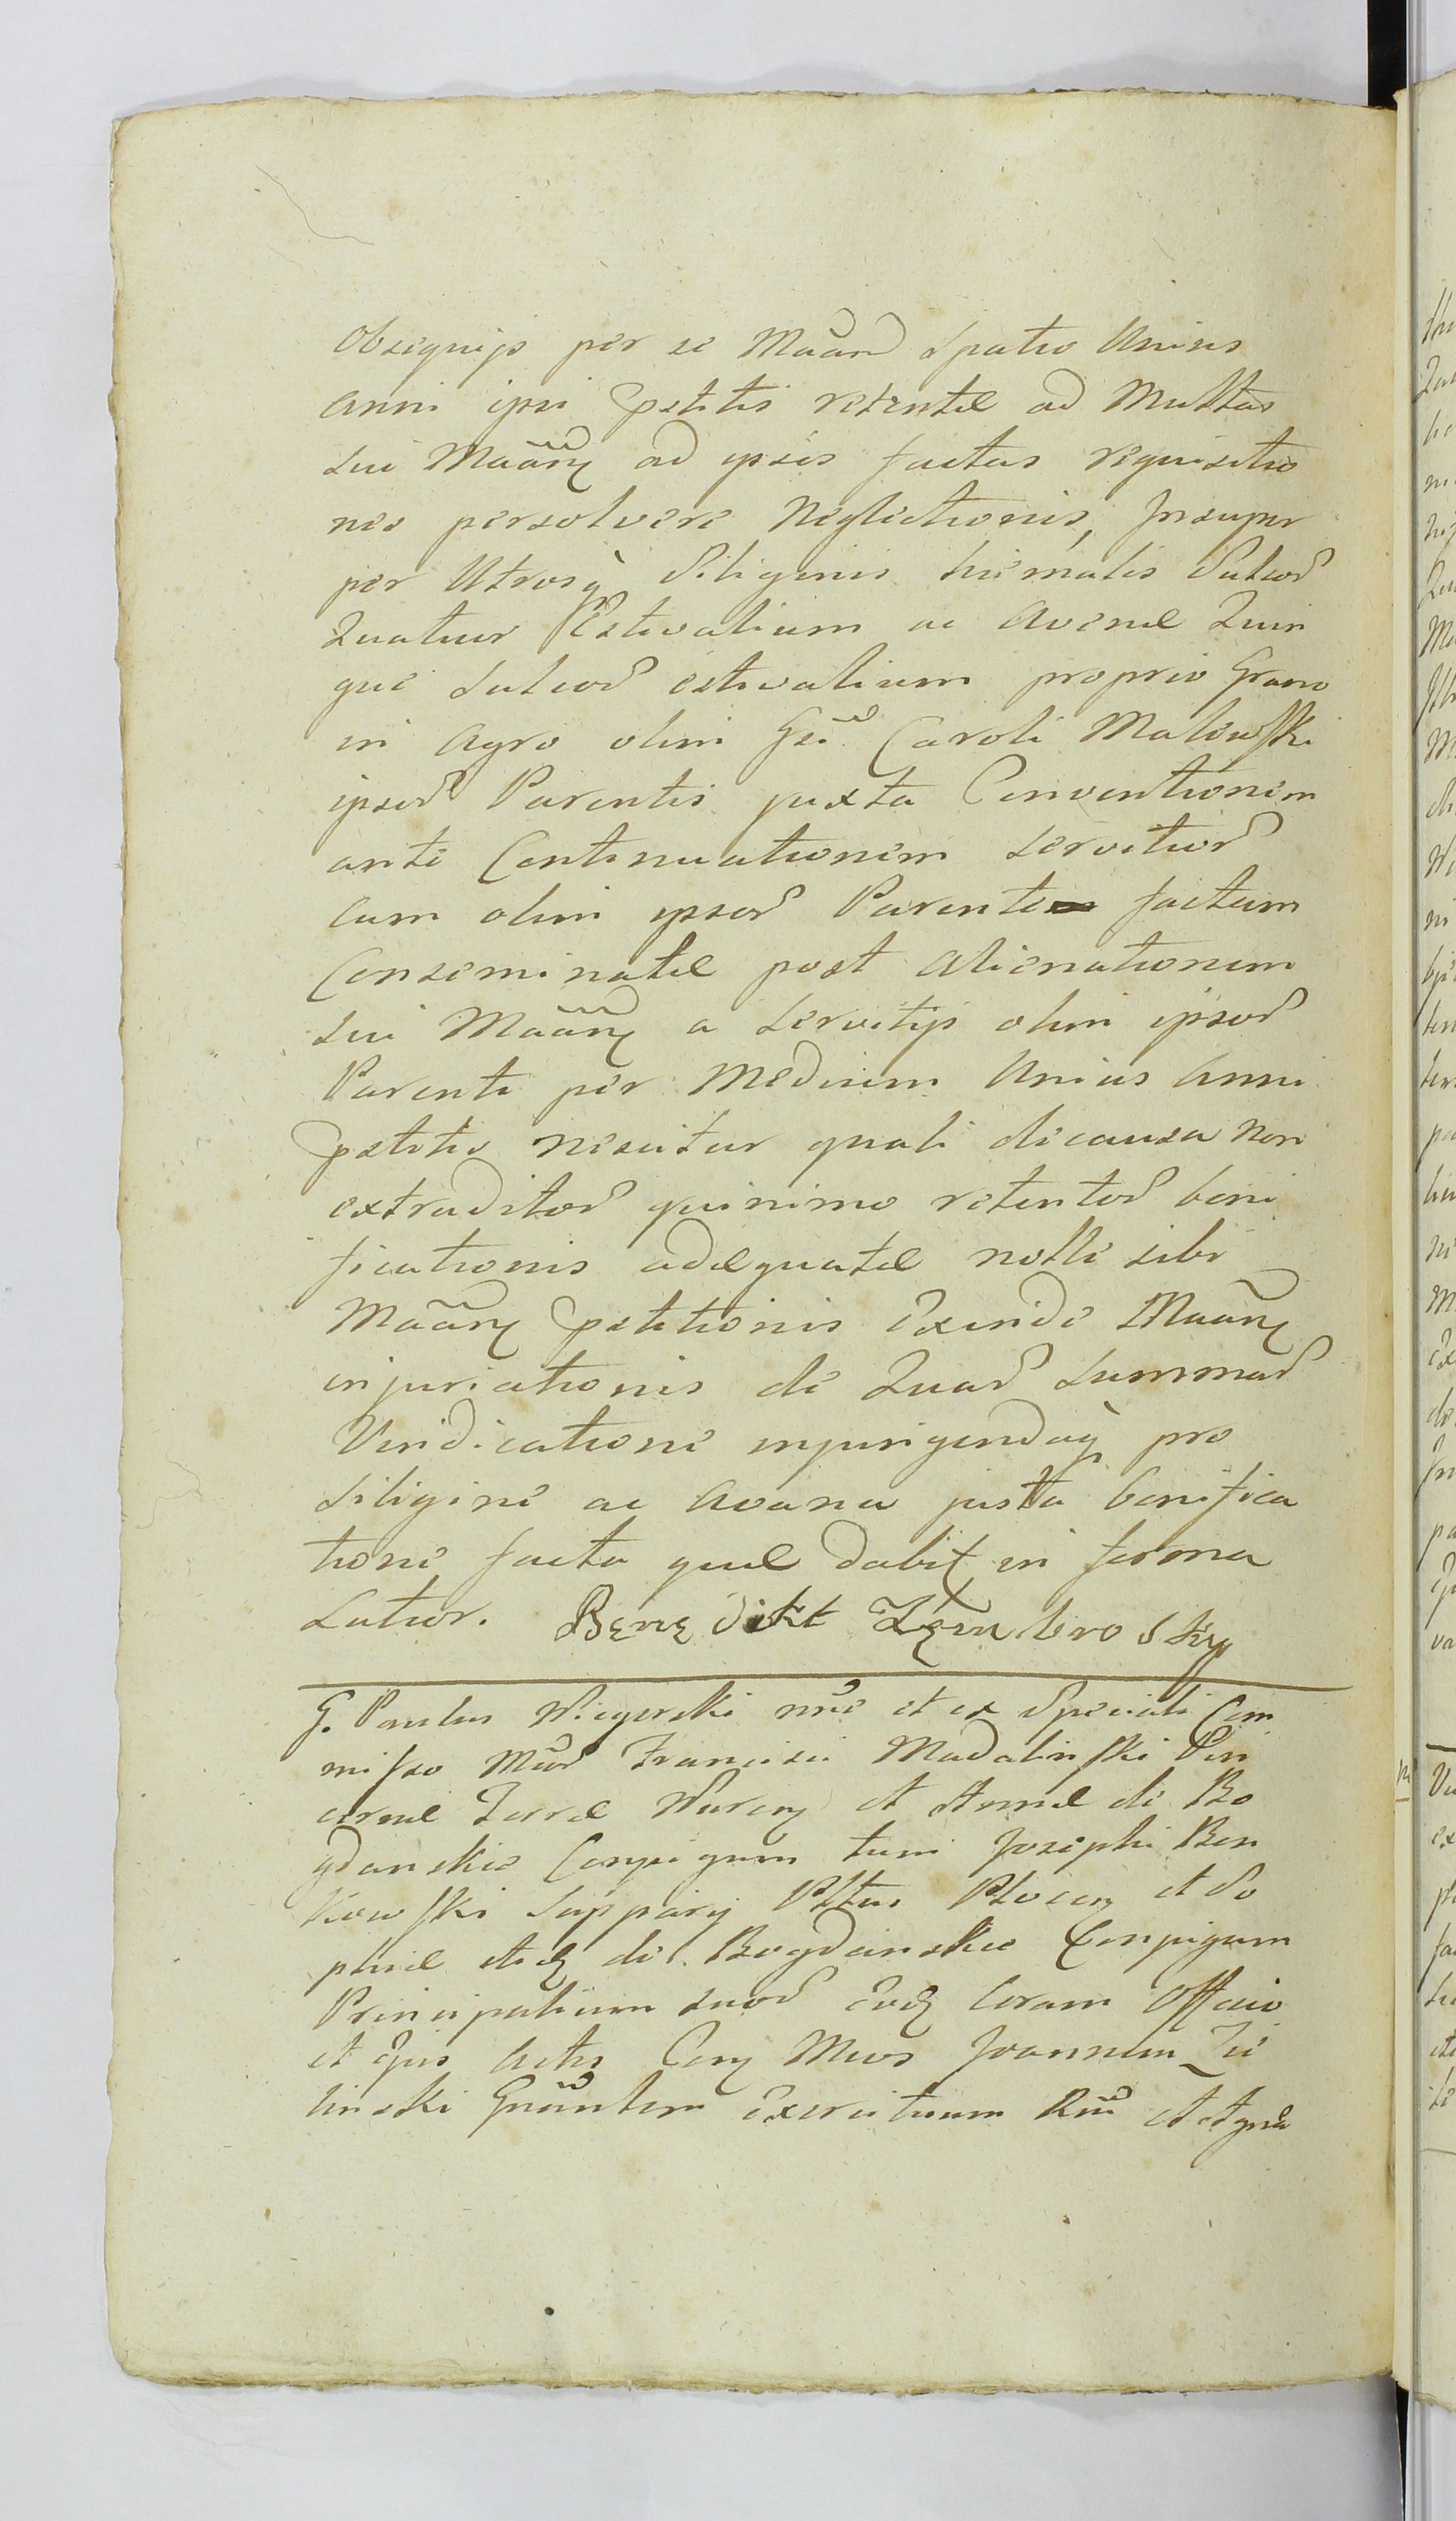 Obsequijs per se Māān Spatio Unius
Anni ipsi pstitis retentæ ad Multas
sui Māāng ad ipsos factas requisitio
nes persolvere Neglectionis, Insuper
per Utrosq̀ Siliginis hiemalis Sulcoꝝ
Quatuor Estivalium ac Avenæ Quin
que Sulcoꝝ estivalium proprio Grano
in Agro olim Gsi Caroli Malowski
ipsoꝝ Parentis juxta Conventionem
ante Continuationem servitioꝝ
cum olim ipsoꝝ Parente factam
Conseminatæ post alienationem
sui Māāng a servitijs olim ipsoꝝ
Parenti per Medium Unius Anni
pstitis nescitur quali de causa non
extraditoꝝ quinimo retentoꝝ boni
ficationis adæquatæ nolle sibi
Māāng pstitionis Exinde Māāng
injuriationis de Quaꝝ Summaꝝ
Vindicatione injungendaq̀ pro
Siligine ac Avena justa bonifica
tione facta quæ dabit in forma
Latior. Benedikt Zembrosky
G. Paulus Wieyerski nrê et ex Speciali Com
misso Mcoꝝ Francisci Madalinski Pin
cernæ Terræ Wurcn et Annæ de Bo
gdanskie Conjugum tum Josephi Bon
kowski Suppary Pttus Plocen et So
phiæ itidꝫ de Bogdanskie Conjugum
Principalium suoꝝ Eodꝫ coram Officio
et Ejus Actis Cong Mcos Joannem Zie
linski Gnāntem Exercituum Rni et Agne